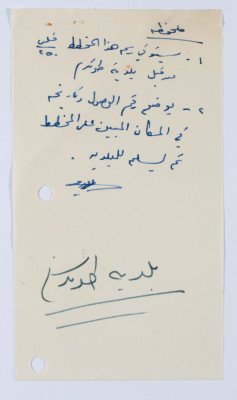 ملحوظة
١ - سيستوفى رسم هذا المخطط
من قبل بلدية طولكرم
٢ - يوضع رقم الوصول وتاريخه
في المكان المبين على المخطط
ثم يسلم للبلدية .
بلدية طولكرم